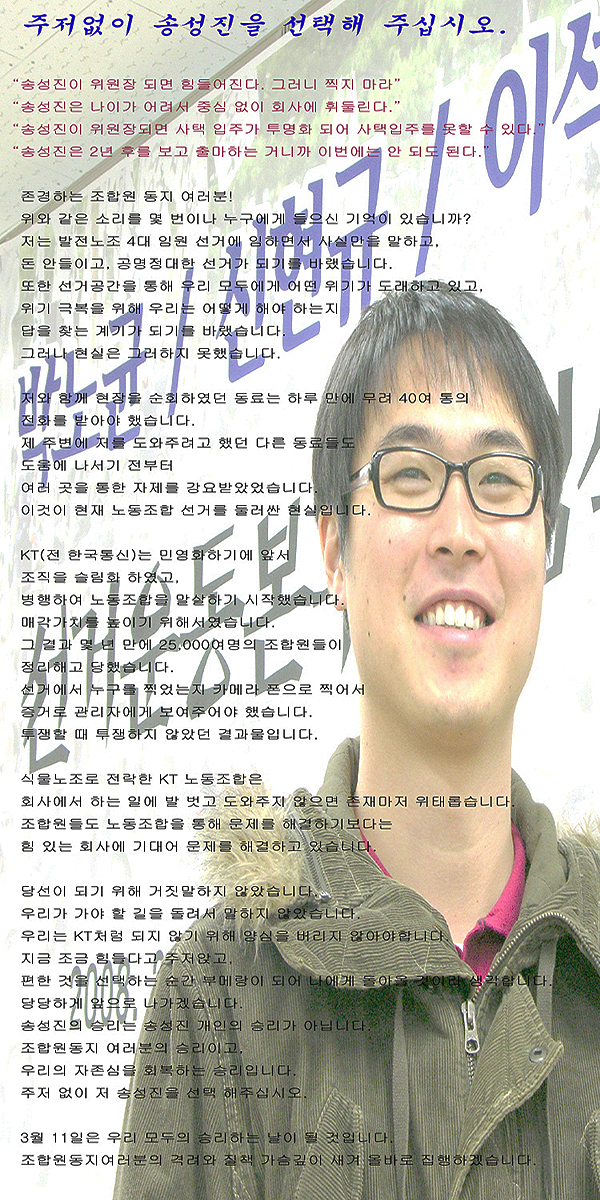 주저없이 송성진을 선택해 주십시오.
“송성진이 위원장 되면 힘들어진다. 그러니 찍지 마라”
“송성진은 나이가 어려서 중심 없이 회사에 휘둘린다.”
“송성진이 위원장되면 사택 입주가 투명화 되어 사택입주를 못할 수 있다.”
“송성진은 2년 후를 보고 출마하는 거니까 이번에는 안 되도 된다.”
존경하는 조합원 동지 여러분!
위와 같은 소리를 몇 번이나 누구에게 들으신 기억이 있습니까?
저는 발전노조 4대 임원 선거에 임하면서 사실만을 말하고,
돈 안들이고, 공명정대한 선거가 되기를 바랬습니다.
또한 선거공간을 통해 우리 모두에게 어떤 위기가 도래하고 있고,
위기 극복을 위해 우리는 어떻게 해야 하는지
답을 찾는 계기가 되기를 바랬습니다.
그러나 현실은 그러하지 못했습니다.
저와 함께 현장을 순회하였던 동료는 하루 만에 무려 40여 통의
전화를 받아야 했습니다.
제 주변에 저를 도와주려고 했던 다른 동료들도
도움에 나서기 전부터
여러 곳을 통한 자제를 강요받았었습니다.
이것이 현재 노동조합 선거를 둘러싼 현실입니다.
KT(전 한국통신)는 민영화하기에 앞서
조직을 슬림화 하였고,
병행하여 노동조합을 말살하기 시작했습니다.
매각가치를 높이기 위해서였습니다.
그 결과 몇 년 만에 25,000여명의 조합원들이
정리해고 당했습니다.
선거에서 누구를 찍었는지 카메라 폰으로 찍어서
증거로 관리자에게 보여주어야 했습니다.
투쟁할 때 투쟁하지 않았던 결과물입니다.
식물노조로 전락한 KT 노동조합은
회사에서 하는 일에 발 벗고 도와주지 않으면 존재마저 위태롭습니다.
조합원들도 노동조합을 통해 문제를 해결하기보다는
힘 있는 회사에 기대어 문제를 해결하고 있습니다.
당선이 되기 위해 거짓말하지 않았습니다.
우리가 가야 할 길을 돌려서 말하지 않았습니다.
우리는 KT처럼 되지 않기 위해 양심을 버리지 않아야합니다.
지금 조금 힘들다고 주저앉고,
편한 것을 선택하는 순간 부메랑이 되어 나에게 돌아올 것이라 생각합니다.
당당하게 앞으로 나가겠습니다.
송성진의 승리는 송성진 개인의 승리가 아닙니다.
조합원동지 여러분의 승리이고,
우리의 자존심을 회복하는 승리입니다.
주저 없이 저 송성진을 선택 해주십시오.
3월 11일은 우리 모두의 승리하는 날이 될 것입니다.
조합원동지여러분의 격려와 질책 가슴깊이 새겨 올바로 집행하겠습니다.
박노균 / 신현규 / 이석
선거운동본
2008.